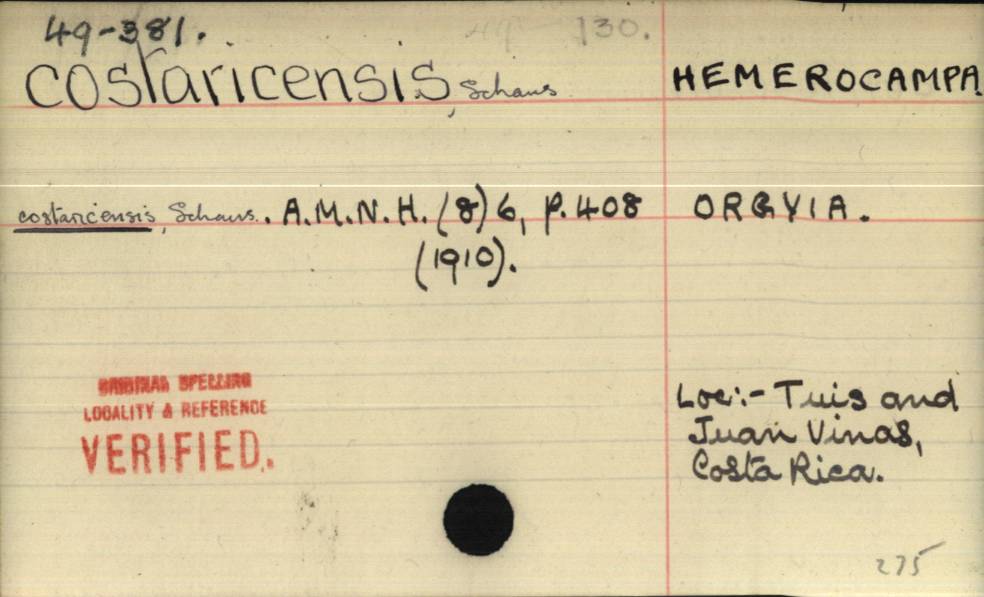 49-381. 130.
costaricensis, Schaus HEMEROCAMPA.
costaricensis, Schaus. A.M.N.H. (8) 6, p.408 ORGYIA.
(1910).
ORIGINAL SPELLING
LOCALITY & REFERENCE
VERIFIED.
Loc:- Tuis and
Juan Vinas,
Costa Rica.
275